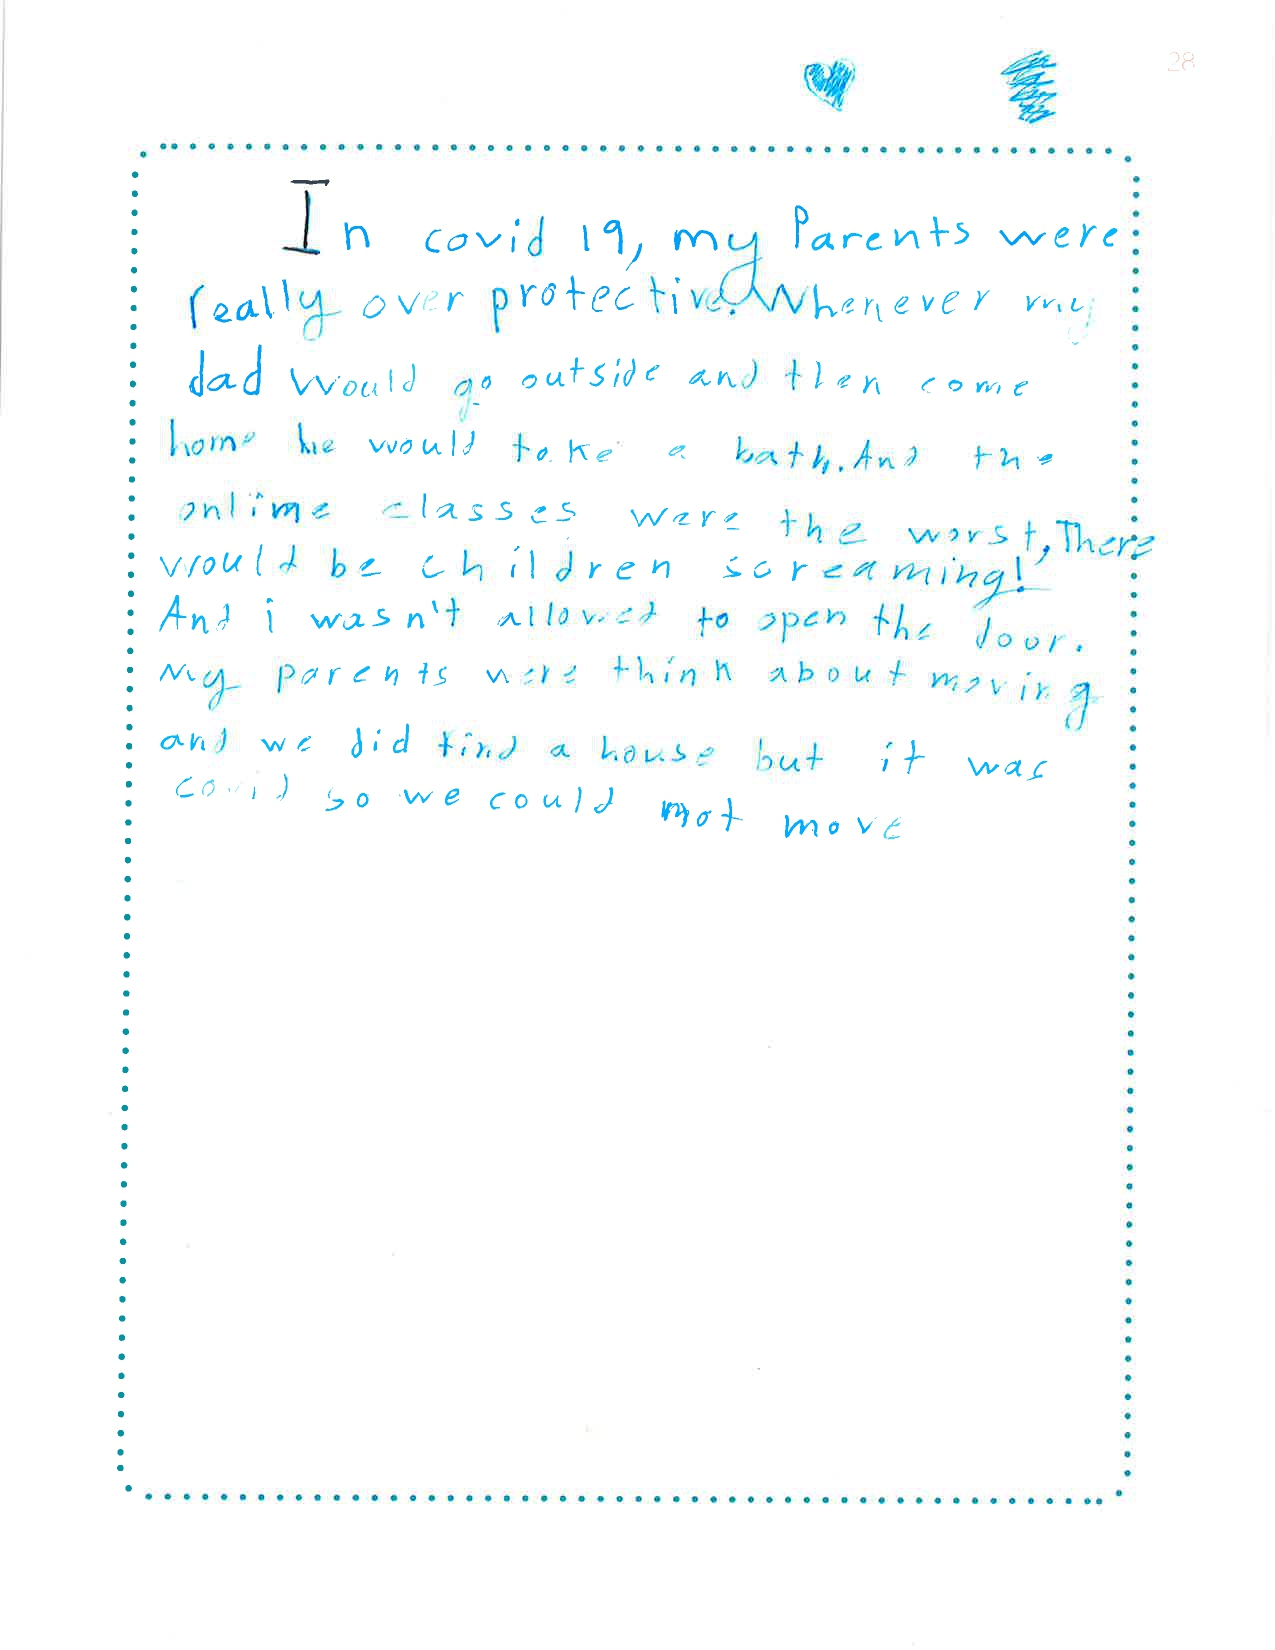 28
In covid 19, my Parents were
really over protective. Whenever my
dad would go outside and then come
home he would take a bath. And the
onlime classes were the worst, There
would be children screaming!
And i wasn't allowed to open the door.
My parents were think about moving
and we did find a house but it was
covid so we could mot move